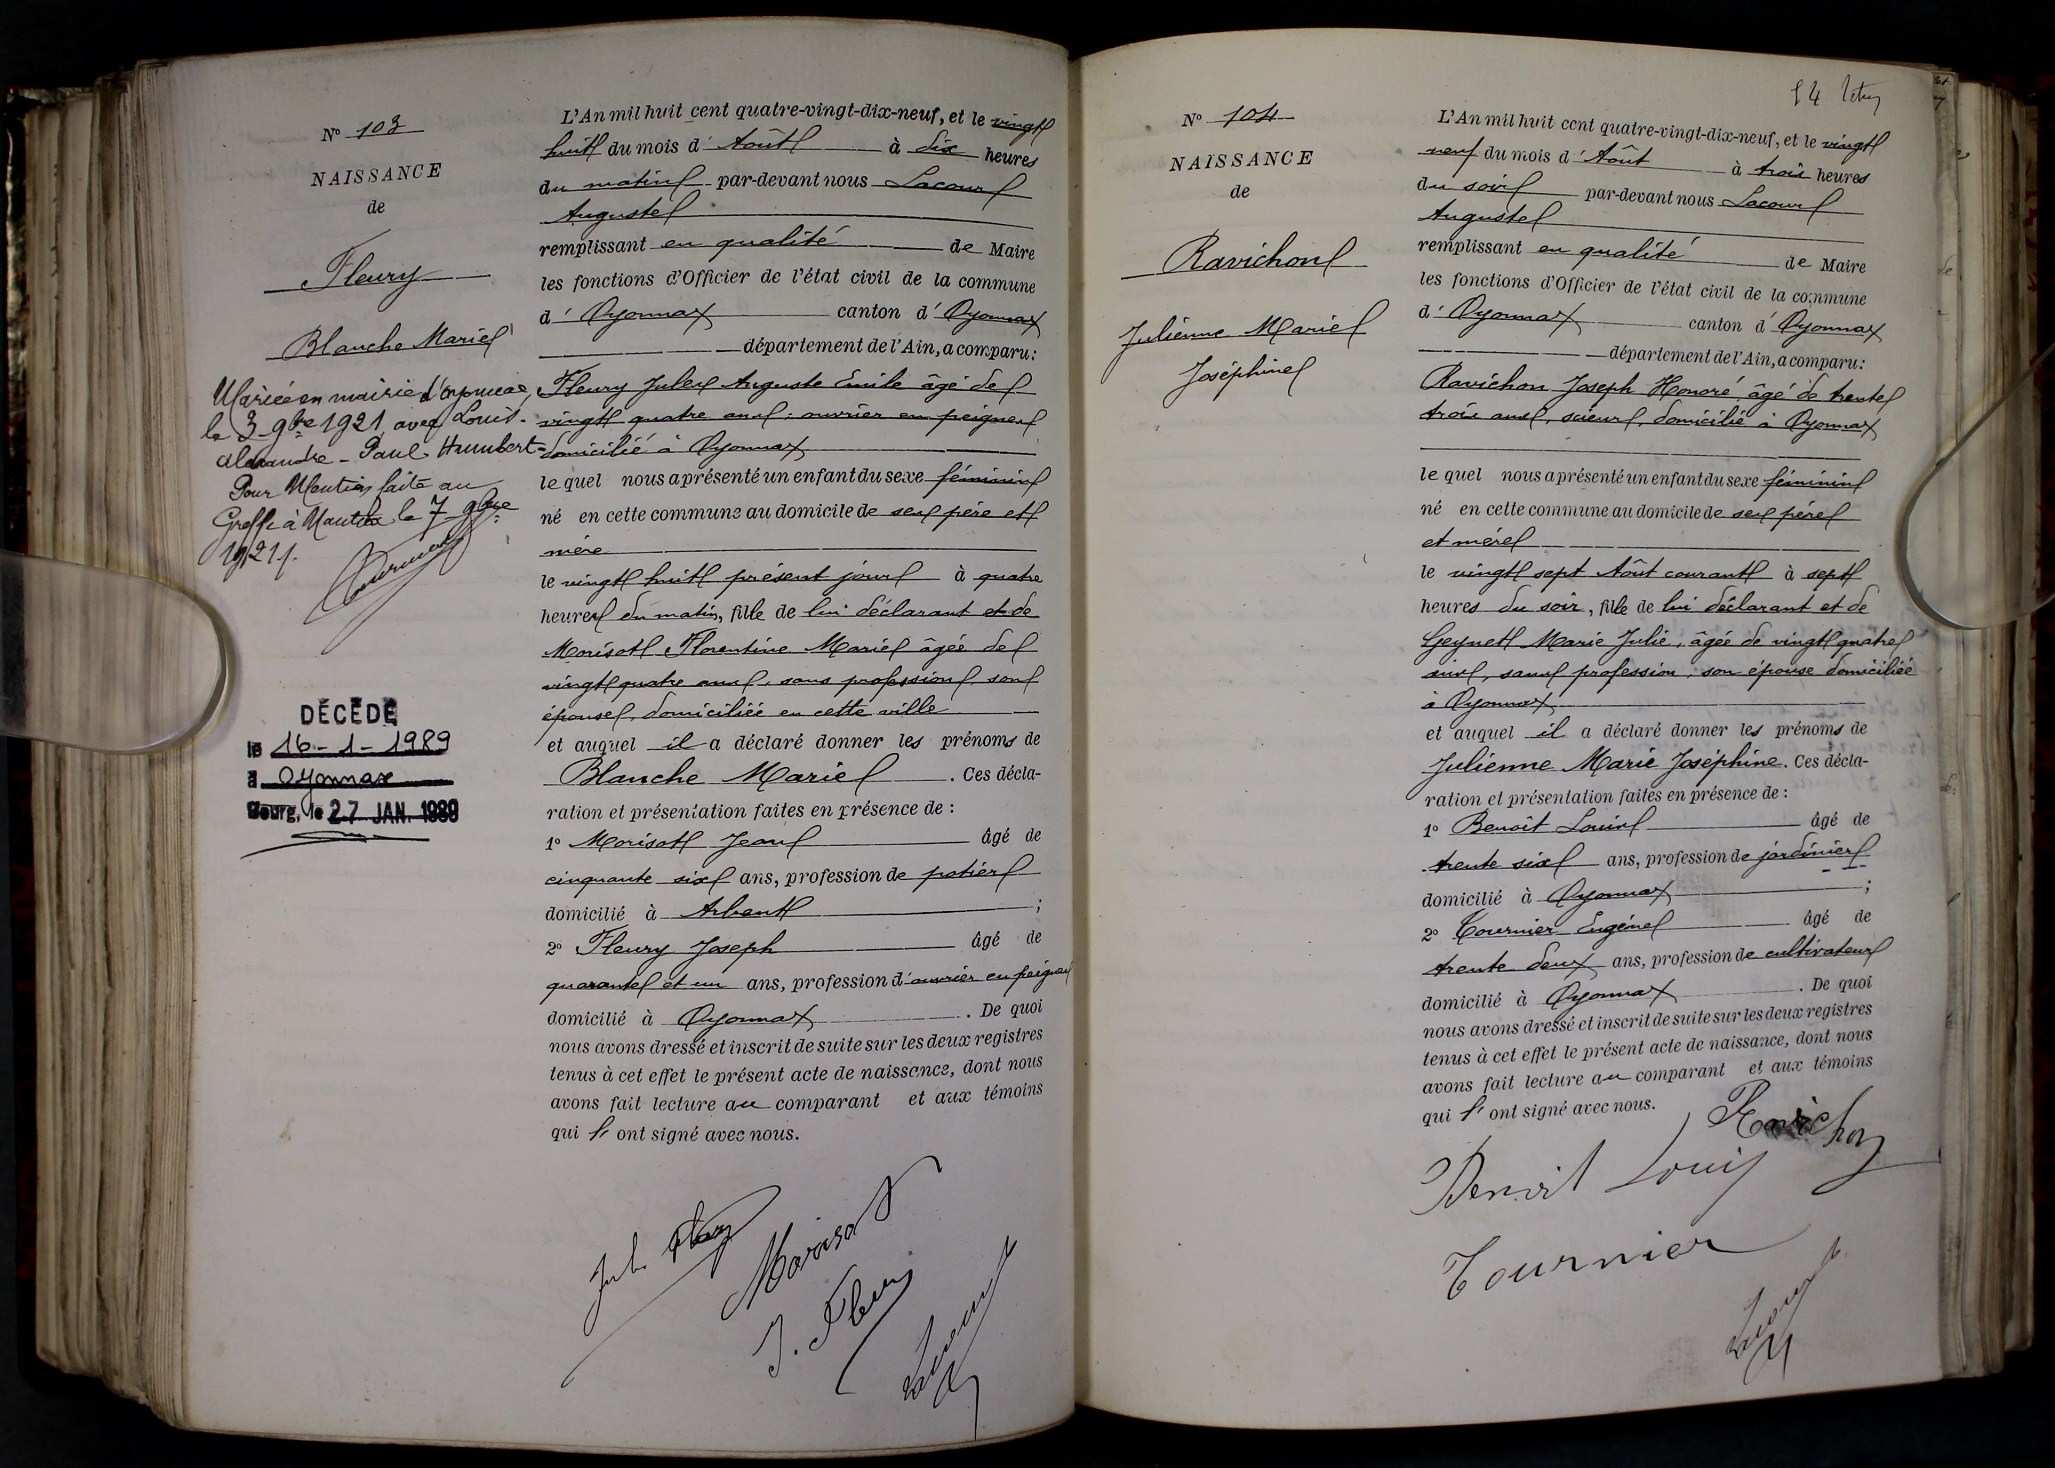 Nº 103
NAISSANCE
de
Fleury
Blanche Marie
Mariée en mairie d'Oyonnax,
le 3 9bre 1921 avec Louis-
Alexandre-Paul Humbert
Pour Mention faite au
Greffe à Nantua le 7 9bre
1921.
DÉCÉDÉ
le 16-1-1989
à Oyonnax
Bourg, le 27 JAN. 1989
L'An mil huit cent quatre-vingt-dix-neuf, et le vingt
huit du mois d'Août à dix heures
du matin par-devant nous Lacour
Auguste
remplissant en qualité de Maire
les fonctions d'Officier de l'état civil de la commune
d'Oyonnax canton d'Oyonnax
département de l'Ain, a comparu:
Fleury Jules Auguste Emile âgé de
vingt quatre ans, ouvrier en peignes
domicilié à Oyonnax
lequel nous a présenté un enfant du sexe féminin
né en cette commune au domicile de ses père et
mère
le vingt huit présent jour à quatre
heures du matin, fille de lui déclarant et de
Morisot Florentine Marie âgée de
vingt quatre ans, sans profession, son
épouse, domiciliée en cette ville
et auquel il a déclaré donner les prénoms de
Blanche Marie. Ces décla-
ration et présentation faites en présence de :
1º Morisot Jean âgé de
cinquante six ans, profession de potier
domicilié à Arbent ;
2º Fleury Joseph âgé de
quarante et un ans, profession d'ouvrier en peignes
domicilié à Oyonnax. De quoi
nous avons dressé et inscrit de suite sur les deux registres
tenus à cet effet le présent acte de naissance, dont nous
avons fait lecture au comparant et aux témoins
qui l'ont signé avec nous.
Jules Fleury
Morisot
J. Fleury
Lacour
Nº 104
NAISSANCE
de
Ravichon
Julienne Marie
Joséphine
L'An mil huit cent quatre-vingt-dix-neuf, et le vingt
neuf du mois d'Août à trois heures
du soir par-devant nous Lacour
Auguste
remplissant en qualité de Maire
les fonctions d'Officier de l'état civil de la commune
d'Oyonnax canton d'Oyonnax
département de l'Ain, a comparu:
Ravichon Joseph Honoré, âgé de trente
trois ans, scieur, domicilié à Oyonnax
lequel nous a présenté un enfant du sexe féminin
né en cette commune au domicile de ses père
et mère
le vingt sept Août courant à sept
heures du soir, fille de lui déclarant et de
Geynet Marie Julie, âgée de vingt quatre
ans, sans profession, son épouse domiciliée
à Oyonnax
et auquel il a déclaré donner les prénoms de
Julienne Marie Joséphine. Ces décla-
ration et présentation faites en présence de :
1º Benoît Louis âgé de
trente six ans, profession de jardinier
domicilié à Oyonnax ;
2º Tournier Eugène âgé de
trente deux ans, profession de cultivateur
domicilié à Oyonnax. De quoi
nous avons dressé et inscrit de suite sur les deux registres
tenus à cet effet le présent acte de naissance, dont nous
avons fait lecture au comparant et aux témoins
qui l'ont signé avec nous.
Ravichon
Benoit Louis
Tournier
Lacour